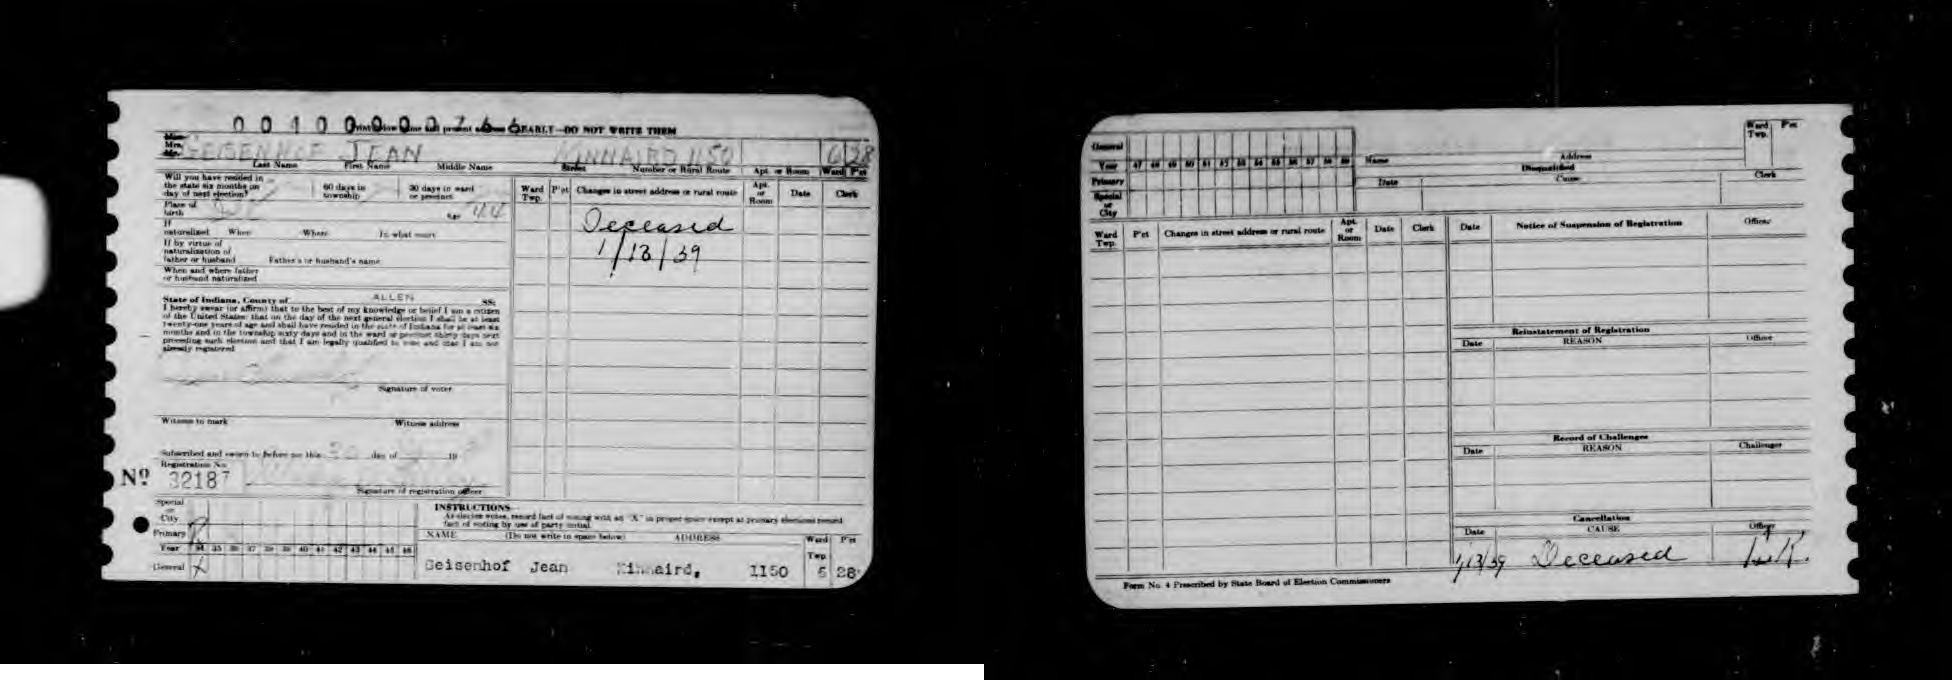 00100000766
Print below name and present address CLEARLY—DO NOT WRITE THEM
Miss
Mrs.
Mr.
GEISENHOF JEAN KINNAIRD 1150 6 28
Last Name First Name Middle Name Street Number or Rural Route Apt. or Room Ward P'ct
Will you have resided in
the state six months on
day of next election?
60 days in
township
30 days in ward
or precinct
Place of
birth
Age 44
If
naturalized When Where In what court
If by virtue of
naturalization of
father or husband Father's or husband's name
When and where father
or husband naturalized
State of Indiana, County of ALLEN SS:
I hereby swear (or affirm) that to the best of my knowledge or belief I am a citizen
of the United States: that on the day of the next general election I shall be at least
twenty-one years of age and shall have resided in the state of Indiana for at least six
months and in the township sixty days and in the ward or precinct thirty days next
preceding such election and that I am legally qualified to vote and that I am not
already registered
Signature of voter
Witness to mark Witness address
Subscribed and sworn to before me this day of 19
Registration No.
Nº 32187
Signature of registration officer
Ward
Twp. P'ct Changes in street address or rural route Apt.
or
Room Date Clerk
Deceased
1/13/39
Special
or
City
Primary R
Year 34 35 36 37 38 39 40 41 42 43 44 45 46
General X
INSTRUCTIONS—
As elector votes, record fact of voting with an "X" in proper space except at primary elections record
fact of voting by use of party initial.
NAME (Do not write in space below) ADDRESS Ward
Twp P'ct
Geisenhof Jean Kinnaird, 1150 6 28
General
Year 47 48 49 50 51 52 53 54 55 56 57 58 59
Primary
Special
or
City
Name Address Ward
Twp. P'ct
Disqualified
Date Cause Clerk
Ward
Twp. P'ct Changes in street address or rural route Apt.
or
Room Date Clerk
Date Notice of Suspension of Registration Officer
Reinstatement of Registration
Date REASON Officer
Record of Challenges
Date REASON Challenger
Cancellation
Date CAUSE Officer
1/13/39 Deceased
Form No. 4 Prescribed by State Board of Election Commissioners